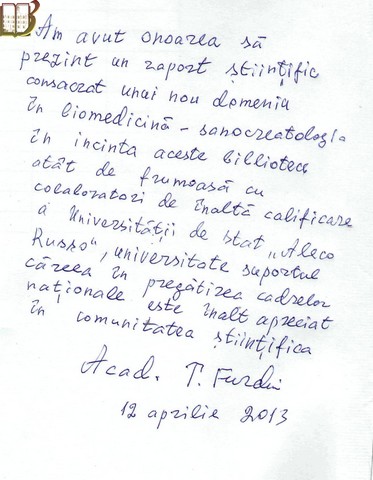 Am avut onoarea să
prezint un raport științific
consacrat unui nou domeniu
în biomedicină - sanocreatologia
în incinta aceste bibliotecи
atât de frumoasă cu
colaboratori de înaltă calificare
a Universității de stat „Aleco
Russo", universitate suportul
căreea în pregătirea cadrelor
naționale este înalt apreciat
în comunitatea științifica
Acad. T. Furdui
12 aprilie 2013